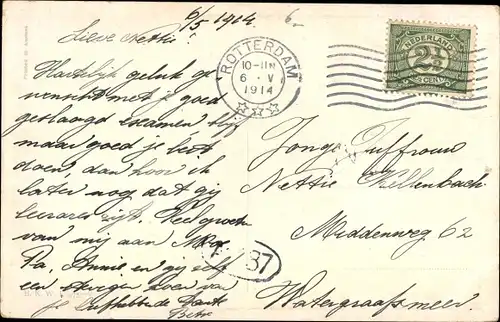 6/5 1914
Lieve Nettie!
Hartelijk geluk ge
wenscht met je goed
geslaagd examen blijf
maar goed je best
doen, dan hoor ik
later nog dat gij
leerares zijt. Veel groeten
van mij aan Moe
Pa, Annie en gij zelf
een stevigen zoen van
je liefhebbende Tante
Betsy
ROTTERDAM
10-11N
6 V
1914
NEDERLAND
2½
CENT
Jonge Juffrouw
Nettie Kellenbach
Middenweg 62
Watergraafsmeer.
87